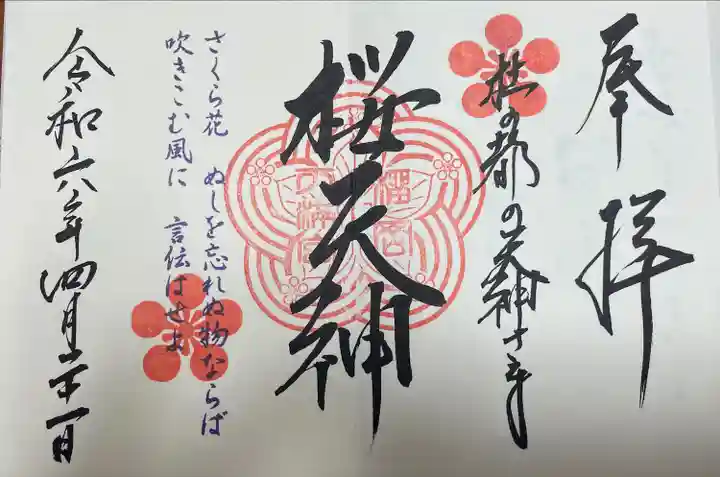 奉拝
杜の都の天神さま
桜天神
さくら花　ぬしを忘れぬ物ならば
吹きこむ風に　言伝はせよ
令和六年四月二十一日